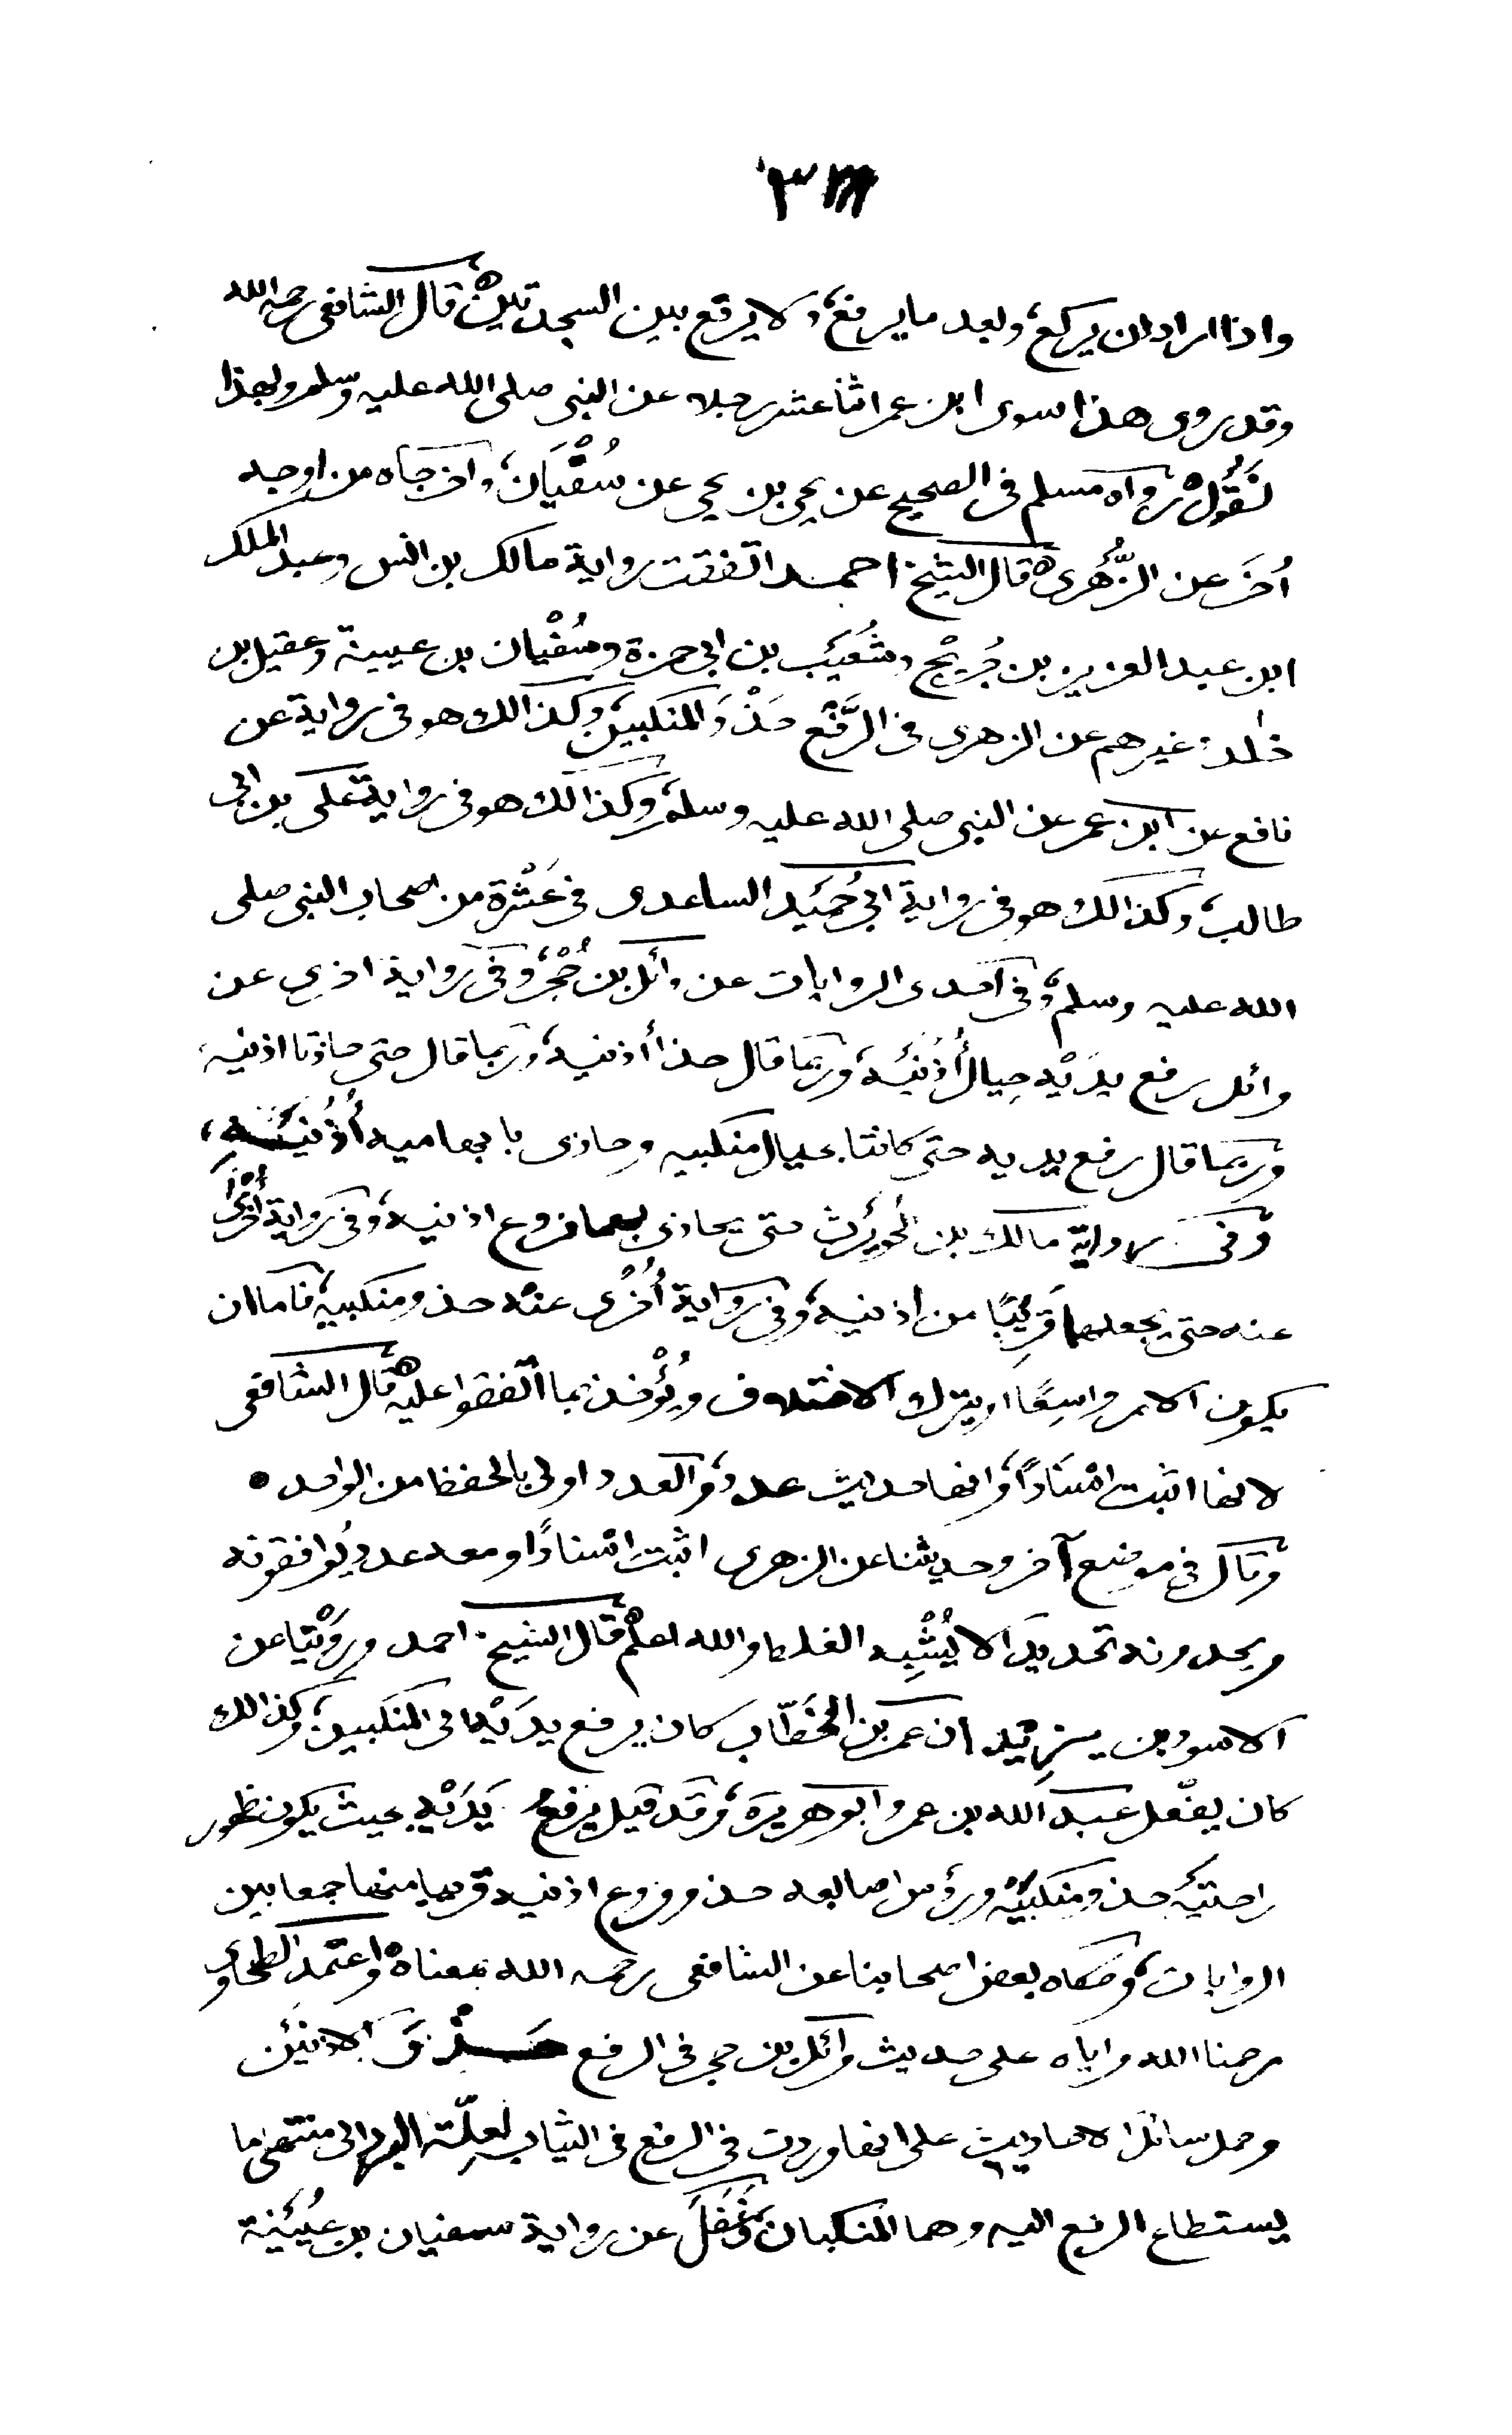 واذا اراد ان يركع، وبعد ما يرفع، ولا يرفع بين السجدتين ه قال الشافعى رحمه الله
وقد روى هذا سوى ابن عمر اثنا عشر رجلا عن النبى صلى الله عليه وسلم وبهذا
نَقُول ه رواه مسلم فى الصحيح عن يحيى بن يحيى عن سُفْيَان، واخرجاه من اوجه
أُخَر عن الزُّهْرى ه قال الشيخ احمد اتفقت رواية مالك بن انس وعبد الملك
ابن عبد العزيز بن جُرَيْج وشُعَيْب بن ابى حمزة وسُفْيان بن عيينة وعقيل بن
خٰلد وغيرهم عن الزهرى فى الرَّفْع حَذْوَ المنكبين، وكذالك هو فى رواية عن
نافع عن ابن عمر عن النبى صلى الله عليه وسلم، وكذالك هو فى رواية على بن ابى
طالب، وكذالك هو فى رواية ابى حُمَيْد الساعدى فى عَشْرة من اصحاب النبى صلى
الله عليه وسلم، وفى احدى الروايات عن وائل بن حُجْر، وفى رواية اخرى عن
وائل رفع يدَيْه حِيال أُذُنَيْه، وربما قال حذا أذنيه، وربما قال حتى حاذتا اذنيه
وربما قال رفع يديه حتى كانتا بحيال منكبيه وحاذى بابهاميه أُذُنَيْهِ،
وفى رواية مالك بن الحُوَيْرث حتى يحاذى بهما فروع اذنيه، وفى رواية أُخْرٰى
عنه حتى يجعلهما قَرِيْبًا من اذنيه، وفى رواية أُخْرى عنه حذو منكبيه، فاما ان
يكون الامر واسِعًا او يترك الاختلاف ويُؤْخذ بما اتّفقوا عليه ه قال الشافعى
لانها اثبت اسْنَادًا، وانها حديث عدد، والعدد اولى بالحفظ من الواحد ه
وقال فى موضع آخر وحديثنا عن الزهرى اثبت اسْنادًا ومعه عدد يُوافقونه
ويحدونه تحديدا لا يُشْبِه الغلط والله اعلم ه قال الشيخ احمد ورُوِّيْنا عن
الاسود بن يزِيْد ان عمر بن الخَطّاب كان يرفع يدَيْه الى المنكبين، وكذالك
كان يفْعل عبد الله بن عمر وابو هريرة، وقد قيل يرفع يَدَيْهِ بحيث يكون ظهور
راحتَيْه حذو منكبَيْه ورؤس اصابعه حذو فروع اذنيه قريبا منها جمعا بين
الروايات، وحكاه بعض اصحابنا عن الشافعى رحمه الله بمعناه ه واعتمد الطحاوى
رحمنا الله واياه على حديث وائل بن حجر فى الرفع حَذْوَ الاذنَيْن
وحمل سائر الاحاديث على انها وردت فى الرفع فى الثياب لعلّة البرد الى منتهى ما
يستطاع الرفع اليه وهما المنكبان، وغَفَلَ عن رواية سفيان بن عُيَيْنة